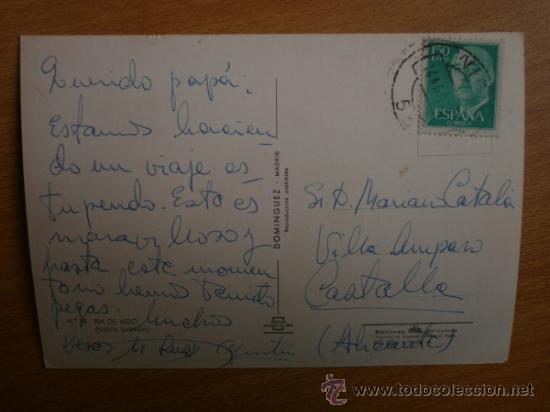 Querido papá:
Estamos hacien
do un viaje es
tupendo. Esto es
maravilloso y
hasta este momen
to no hemos tenido
pegas. Muchos
besos
RIA DE VIGO
PUENTE SAMPAYO
DOMINGUEZ - MADRID
Reproducción prohibida
1'50
PTAS
ESPAÑA
CORREOS
Sr. D. Mariano Catalá
Villa Amparo
Castalla
(Alicante)
todocoleccion.net